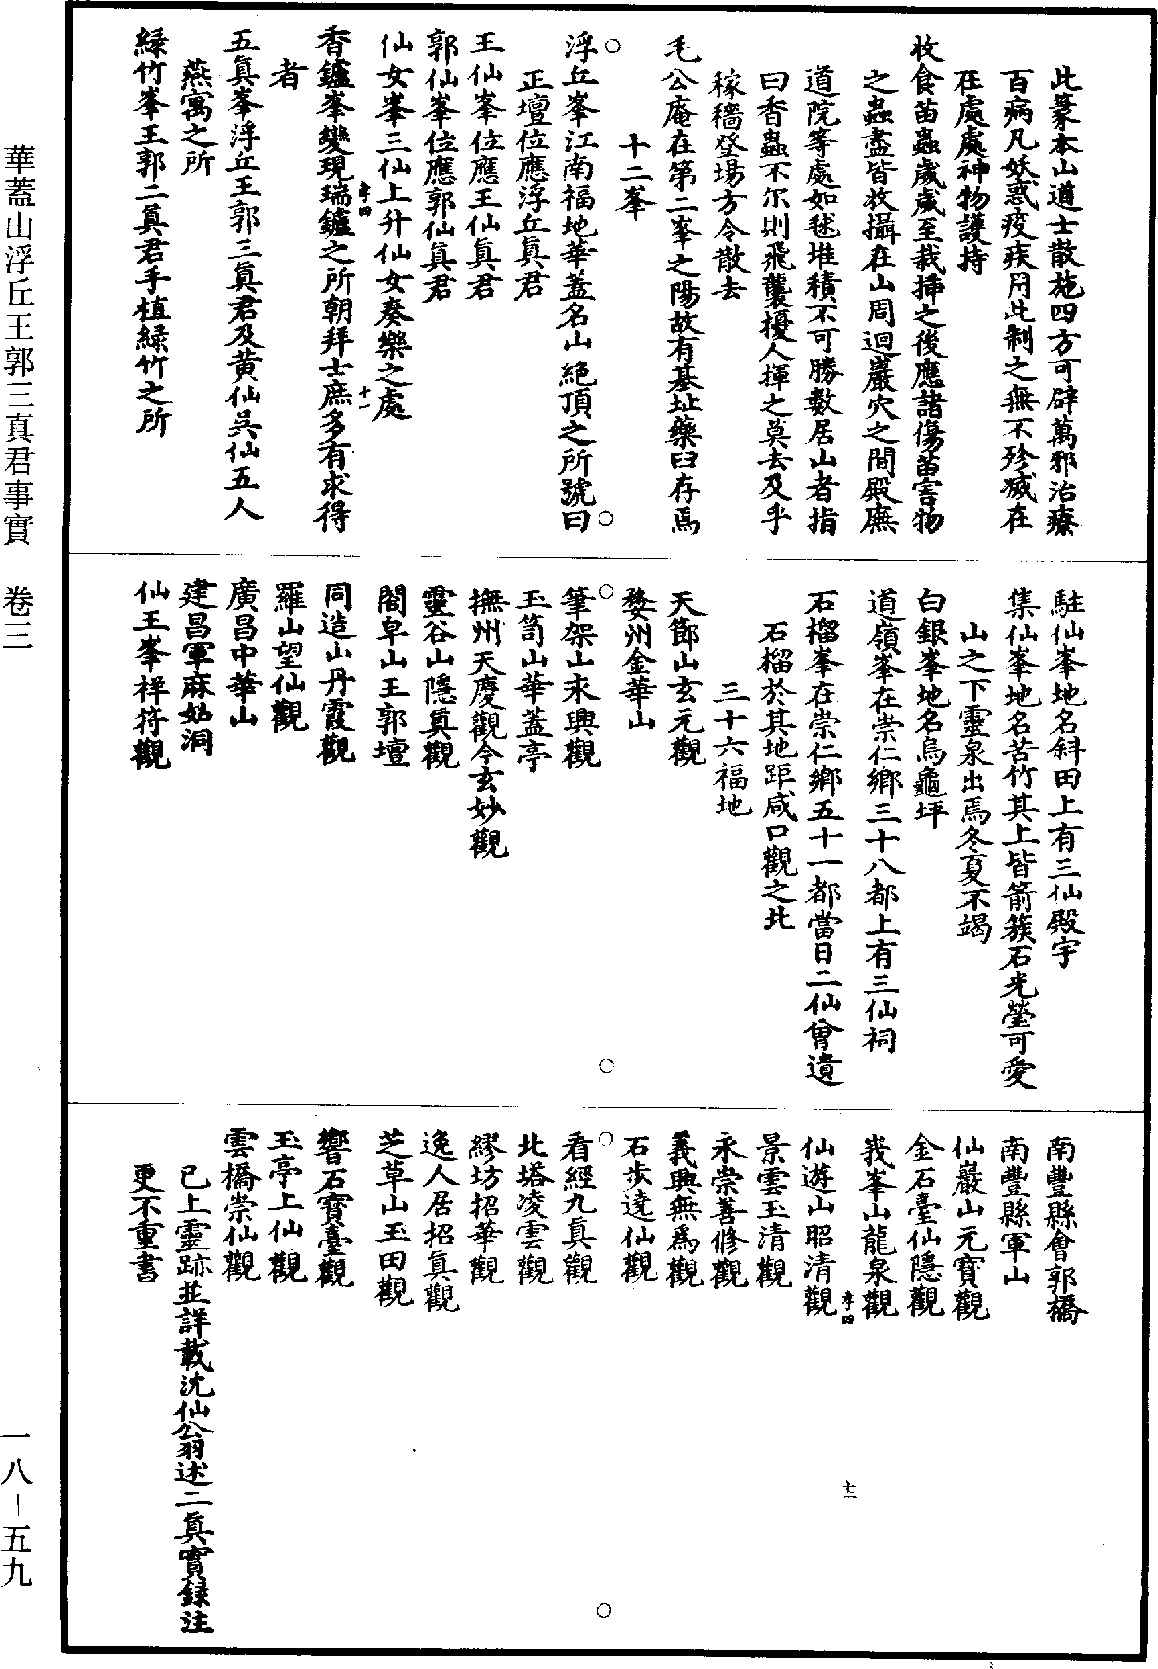 此篆本山道士散施四方可辟萬邪治療
百病凡妖惑疫疾用此制之無不殄滅在
在處處神物護持
收食苗蟲歲歲至栽插之後應諸傷苗害物
之蟲盡皆收攝在山周迴巖穴之間殿廡
道院等處如毬堆積不可勝數居山者指
曰香蟲不尔則飛襲擾人揮之莫去及乎
稼穡登場方令散去
毛公庵在第二峯之陽故有基址藥臼存焉
十二峯
浮丘峯江南福地華蓋名山絕頂之所號曰
正壇位應浮丘真君
王仙峯位應王仙真君
郭仙峯位應郭仙真君
仙女峯三仙上升仙女奏樂之處
孝四
十一
香鑪峯變現瑞鑪之所朝拜士庶多有求得
者
五真峯浮丘王郭三真君及黄仙吳仙五人
燕寓之所
緑竹峯王郭二真君手植緑竹之所
駐仙峯地名斜田上有三仙殿宇
集仙峯地名苦竹其上皆箭簇石光瑩可愛
山之下靈泉出焉冬夏不竭
白銀峯地名烏龜坪
道嶺峯在崇仁鄉三十八都上有三仙祠
石榴峯在崇仁鄉五十一都當日二仙曾遺
石榴於其地距咸口觀之北
三十六福地
天節山玄元觀
婺州金華山
筆架山來興觀
玉笥山華蓋亭
撫州天慶觀今玄妙觀
靈谷山隱真觀
閤皁山王郭壇
同造山丹霞觀
羅山望仙觀
廣昌中華山
建昌軍麻姑洞
仙王峯祥符觀
南豐縣會郭橋
南豐縣軍山
仙巖山元寶觀
金石臺仙隱觀
我峯山龍泉觀
孝四
十二
仙遊山昭清觀
景雲玉清觀
永崇善修觀
義興無爲觀
石步達仙觀
看經九真觀
北塔凌雲觀
繆坊招華觀
逸人居招真觀
芝草山玉田觀
響石寶臺觀
玉亭上仙觀
雲橋崇仙觀
已上靈跡並詳載沈仙翁述二真實録注
更不重書
華蓋山浮丘王郭三真君事實 卷三
一八－五九